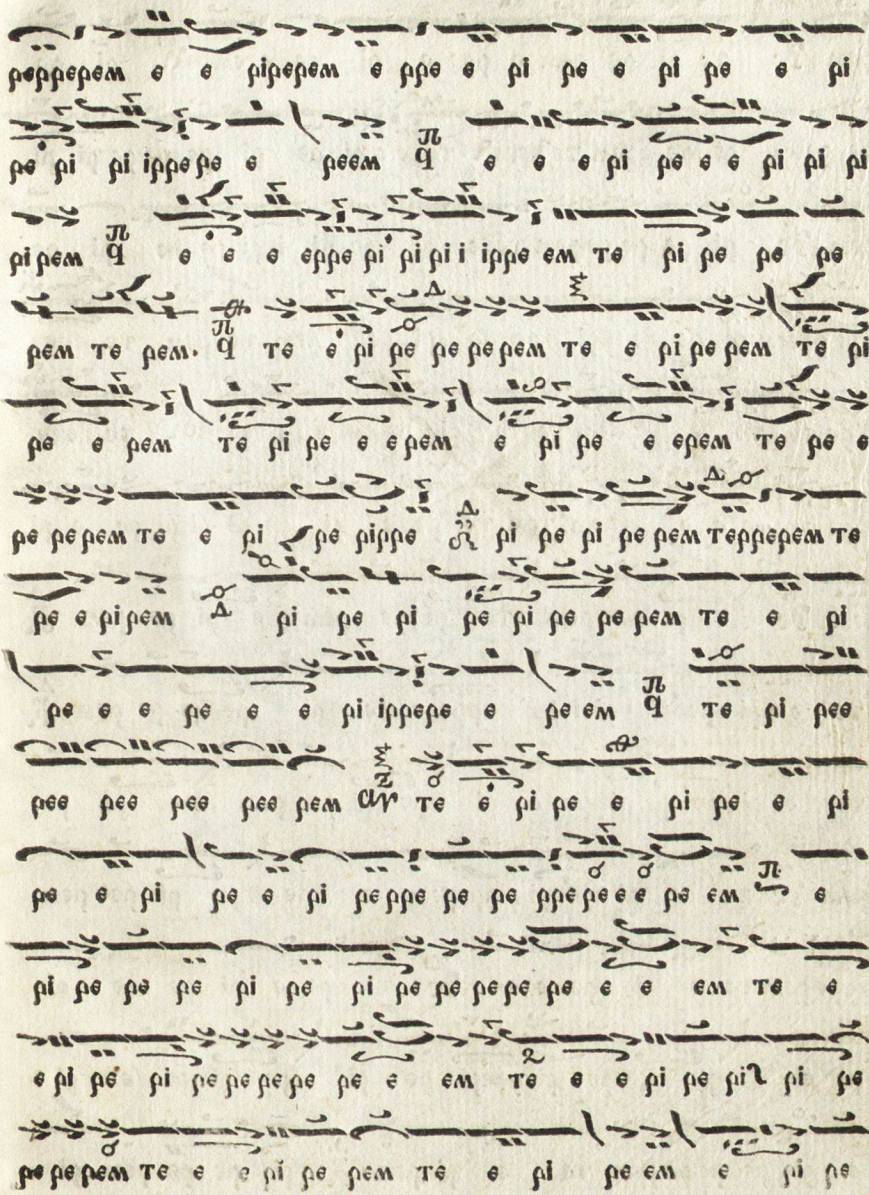 рерререм е е ріререм е рре е рі ре е рі ре е рі
ре рі рі іррере е реем е е е рі ре е е рі рі рі
рі рем е е е ерре рі рі рі і ірре ем те рі ре ре ре
рем те рем. те е рі ре ре ре рем те е рі ре рем те рі
ре е рем те рі ре е е рем е рі ре е ерем те ре е
ре ре рем те е рі ре рірре рі ре рі ре рем терререм те
ре е рі рем рі ре рі ре рі ре ре рем те е рі
ре е е ре е е рі іррере е ре ем те рі рее
рее рее рее рее рем те е рі ре е рі ре е рі
ре е рі ре е рі ре рре ре ре рре ре е е ре ем е
рі ре ре ре рі ре рі ре ре ре ре ре е е ем те е
е рі ре рі ре ре ре ре ре е ем те е е рі ре рі рі ре
ре ре рем те е е рі ре рем те е рі ре ем е рі ре